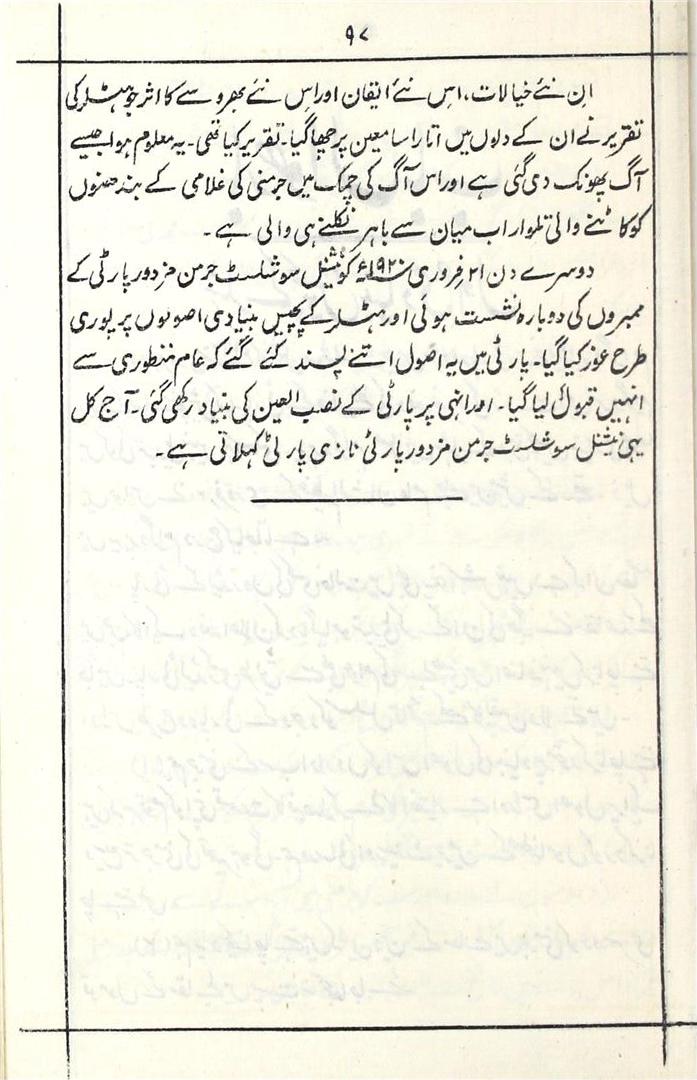 ۹۷
اِن نئے خیالات، اس نئے ایقان اور اس نئے بھروسے کا اثر جو ہٹلر کی
تقریر نے ان کے دلوں میں اتارا سامعین پر چھا گیا۔ تقریر کیا تھی۔ یہ معلوم ہوا جیسے
آگ پھونک دی گئی ہے اور اس آگ کی چمک میں جرمنی کی غلامی کے بندھنوں
کو کاٹنے والی تلوار اب میان سے باہر نکلنے ہی والی ہے۔
دوسرے دن ۲۱ فروری ۱۹۲۰ء کو نیشنل سوشلسٹ جرمن مزدور پارٹی کے
ممبروں کی دوبارہ نشست ہوئی اور ہٹلر کے پچیس بنیادی اصولوں پر پوری
طرح غور کیا گیا۔ پارٹی میں یہ اصول اتنے پسند کئے گئے کہ عام منظوری سے
انہیں قبول لیا گیا۔ اور انہی پر پارٹی کے نصب العین کی بنیاد رکھی گئی۔ آج کل
یہی نیشنل سوشلسٹ جرمن مزدور پارٹی نازی پارٹی کہلاتی ہے۔